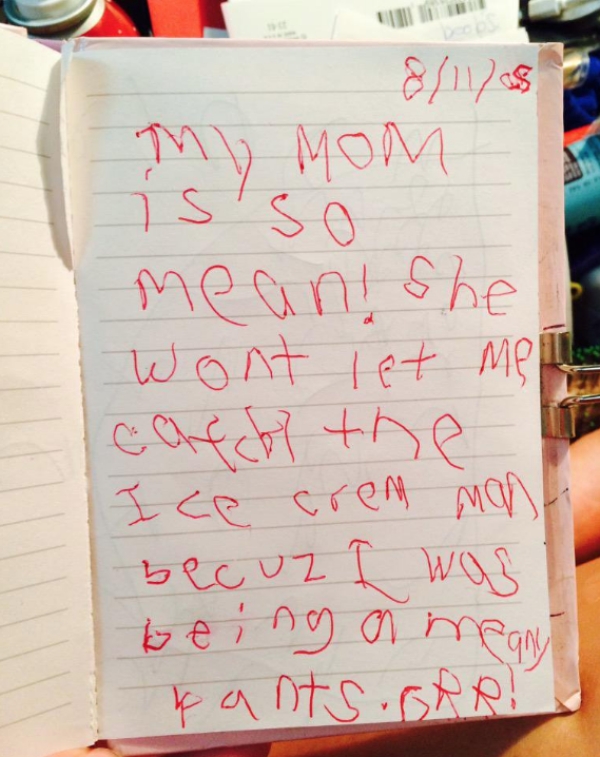 8/11/05
My MOM
is so
mean! She
wont let me
catch the
Ice crem man
becuz I was
being a meany
pants. GRR!